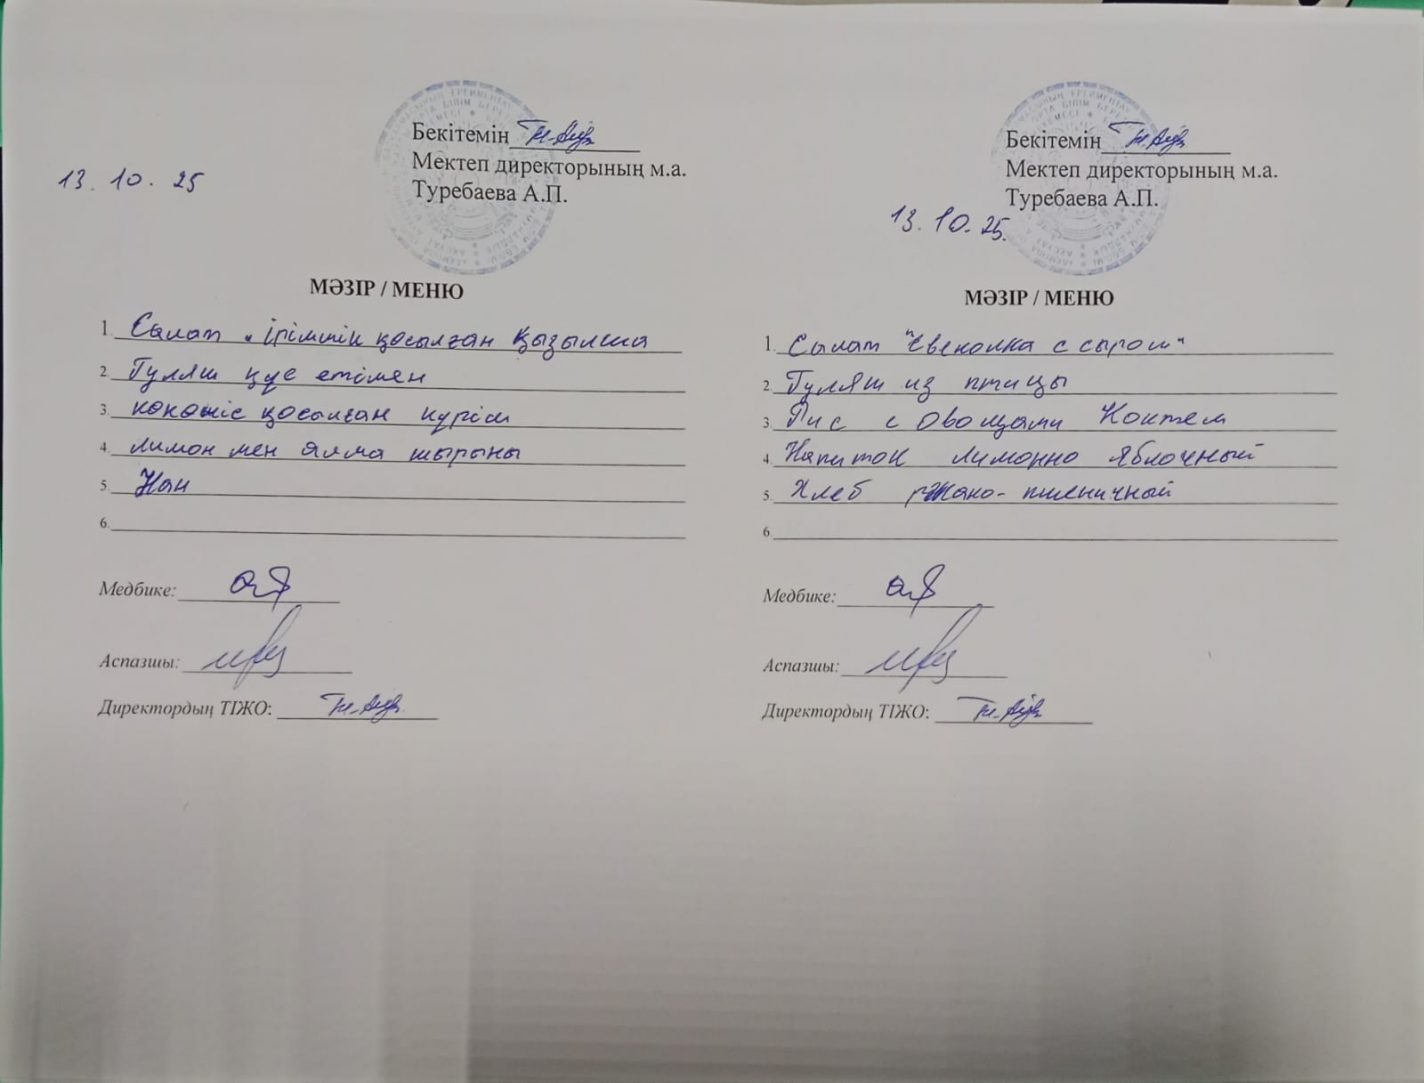 13. 10. 25
Бекітемін
Мектеп директорының м.а.
Туребаева А.П.
МӘЗІР / МЕНЮ
1. Салат " ірімшік қосылған қызылша
2. Гуляш құс етімен
3. көкөніс қосылған күріш
4. лимон мен алма шырыны
5. Нан
6.
Медбике:
Аспазшы:
Директордың ТІЖО:
Бекітемін
Мектеп директорының м.а.
Туребаева А.П.
13. 10. 25.
МӘЗІР / МЕНЮ
1. Салат "Свеколка с сыром"
2. Гуляш из птицы
3. Рис с Овощами Коктем
4. Напиток лимонно яблочный
5. Хлеб ржано-пшеничный
6.
Медбике:
Аспазшы:
Директордың ТІЖО: